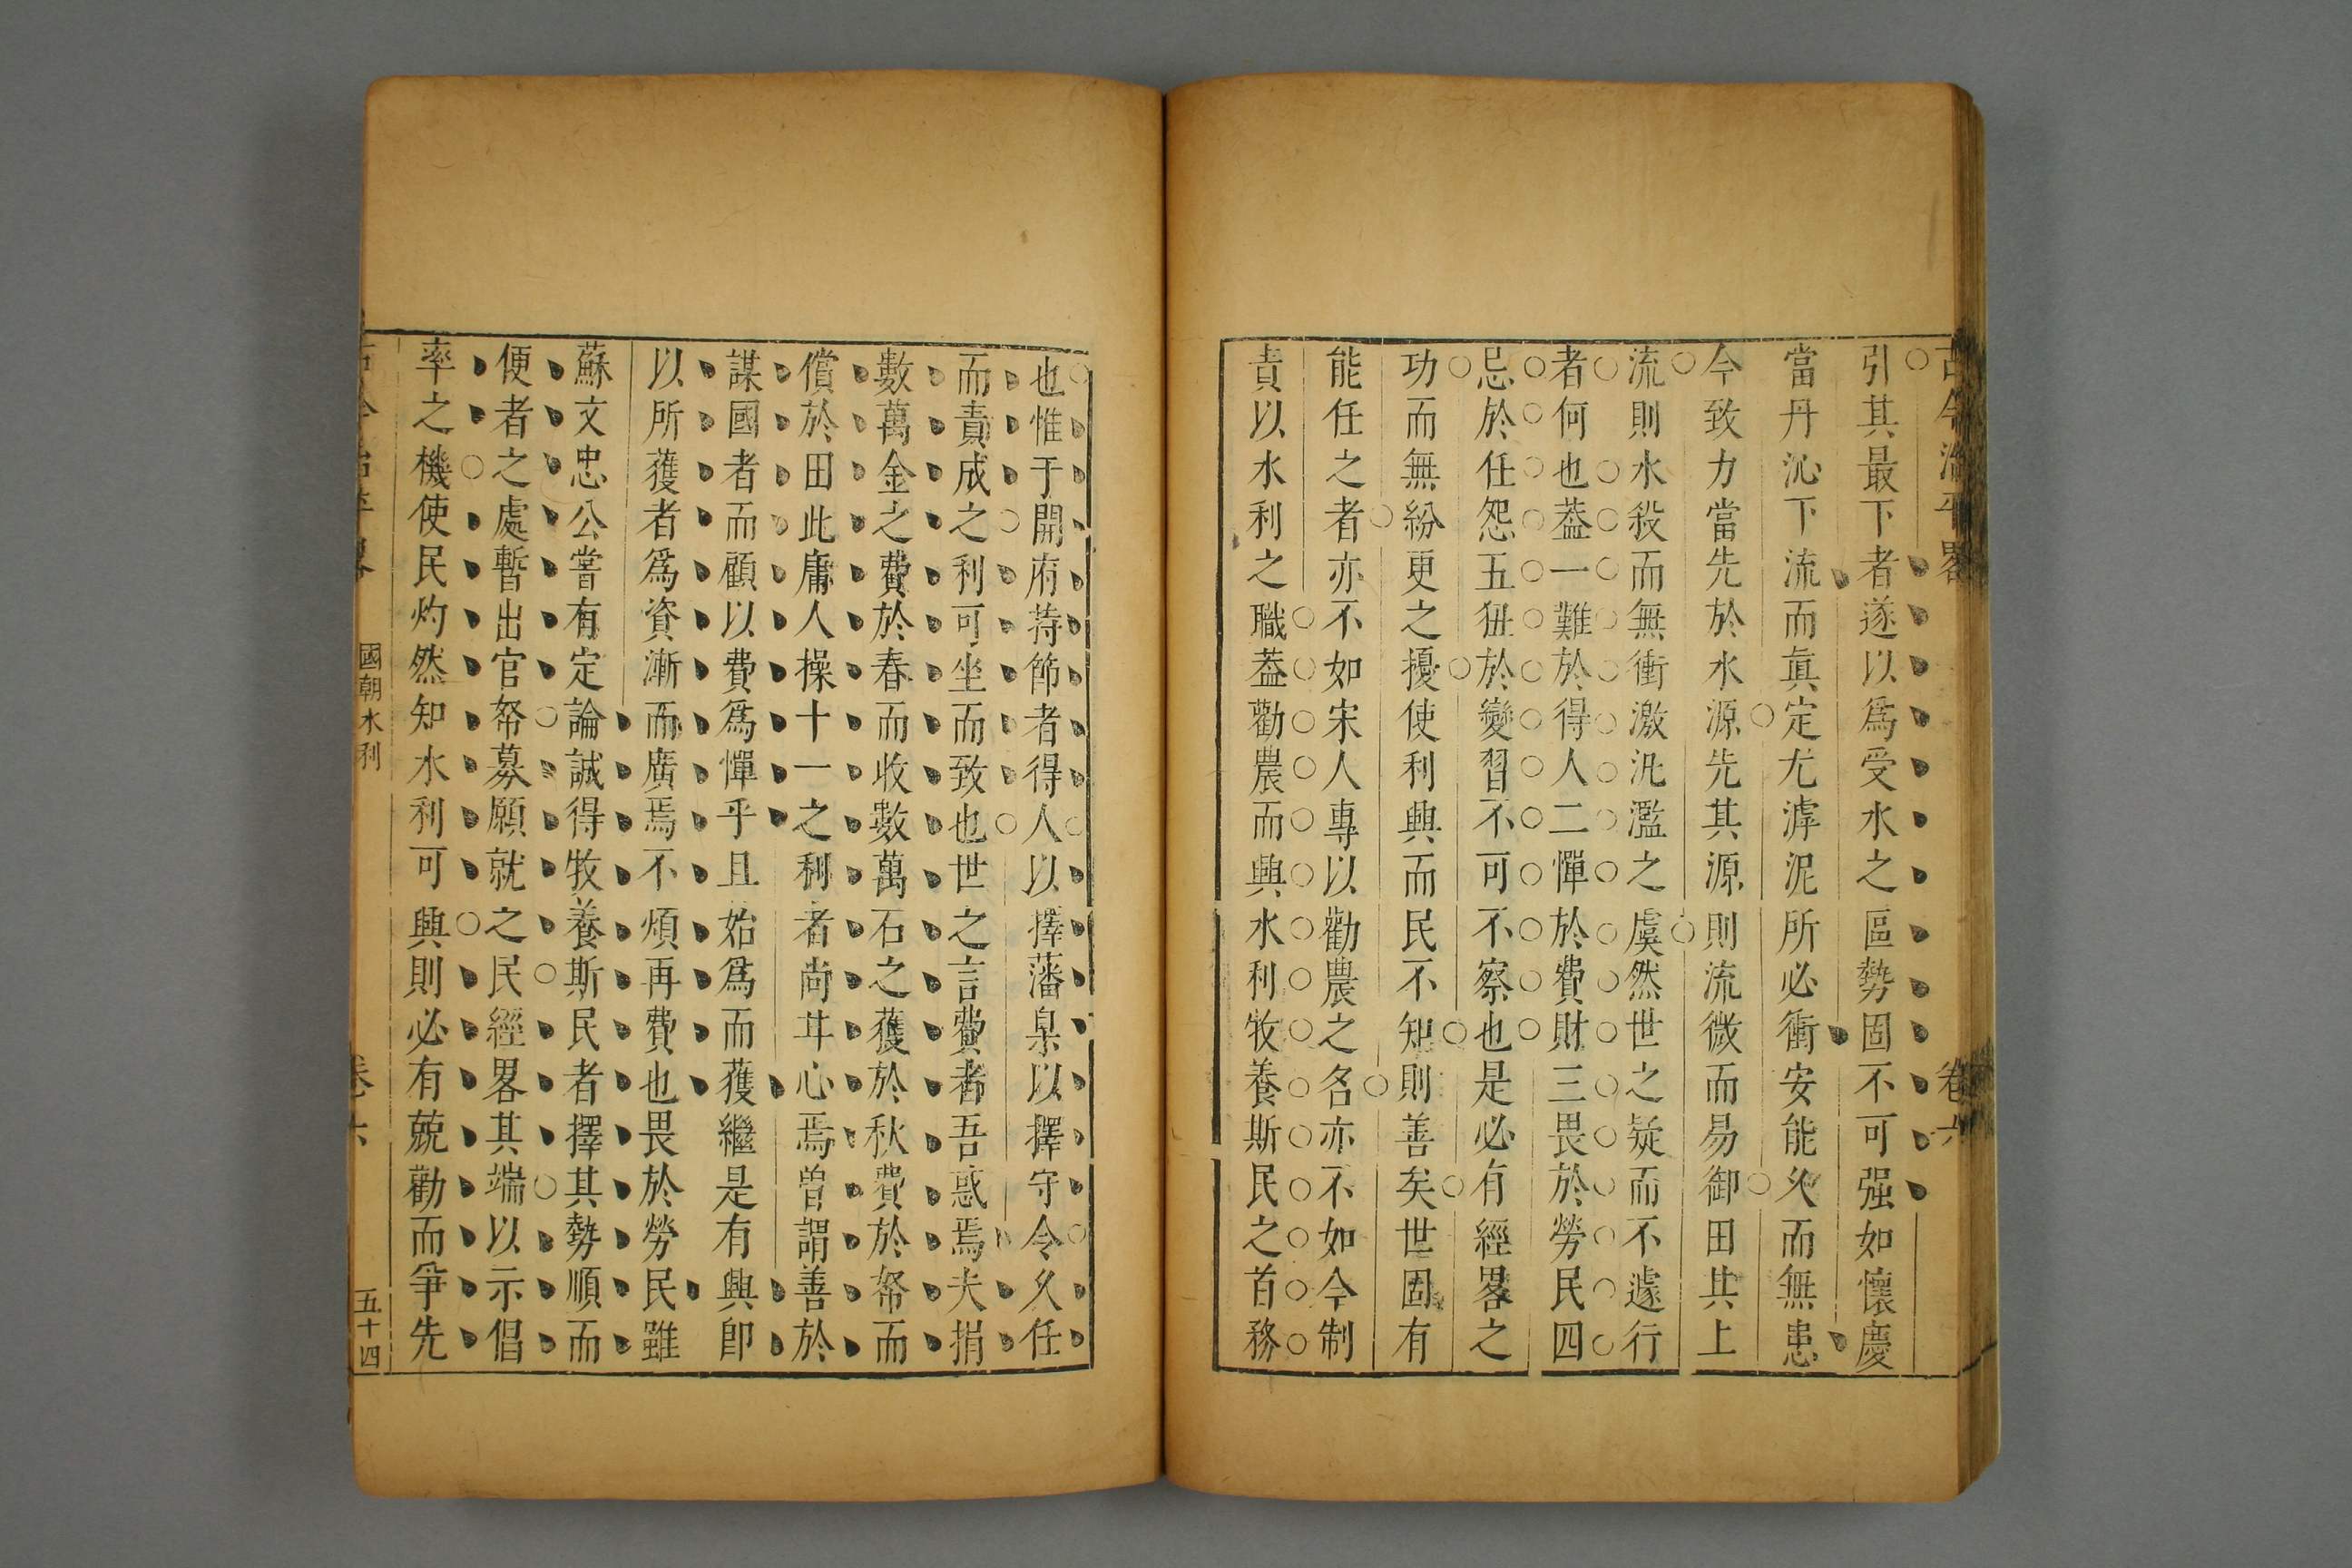 古今治平畧 卷六
引其最下者遂以爲受水之區勢固不可强如懷慶
當丹沁下流而眞定尤滹泥所必衝安能久而無患
今致力當先於水源先其源則流微而易御田其上
流則水殺而無衝激汎濫之虞然世之疑而不遽行
者何也葢一難於得人二憚於費財三畏於勞民四
忌於任怨五狃於變習不可不察也是必有經畧之
功而無紛更之擾使利興而民不知則善矣世固有
能任之者亦不如宋人專以勸農之名亦不如今制
責以水利之職葢勸農而興水利牧養斯民之首務
也惟于開府持節者得人以擇藩臬以擇守令久任
而責成之利可坐而致也世之言費者吾惑焉夫捐
數萬金之費於春而收數萬石之獲於秋費於帑而
償於田此庸人操十一之利者尚甘心焉曾謂善於
謀國者而顧以費爲憚乎且始爲而獲繼是有興卽
以所獲者爲資漸而廣焉不煩再費也畏於勞民雖
蘇文忠公嘗有定論誠得牧養斯民者擇其勢順而
便者之處暫出官帑募願就之民經畧其端以示倡
率之機使民灼然知水利可興則必有競勸而爭先
古今治平畧 國朝水利 卷六 五十四